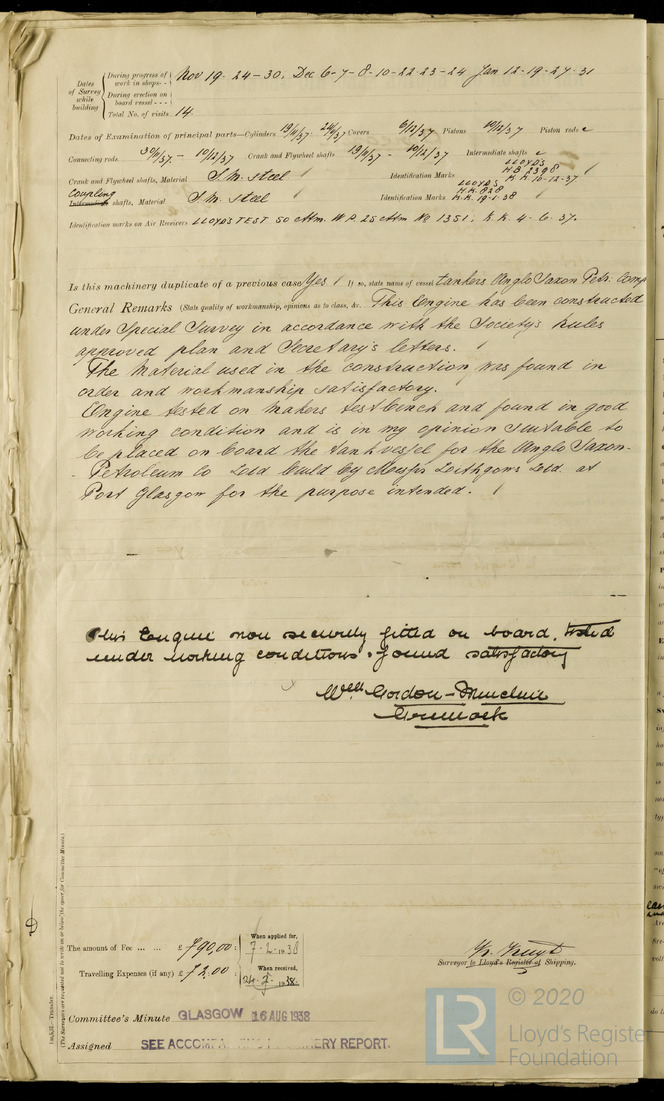 Dates of Survey while building
During progress of work in shops - - Nov 19 - 24 - 30, Dec 6 - 7 - 8 - 10 - 22 - 23 - 24 Jan 12 - 19 - 27 - 31
During erection on board vessel - - -
Total No. of visits 14
Dates of Examination of principal parts—Cylinders 19/11/37 - 24/11/37 Covers 6/12/37 Pistons 10/12/37 Piston rods
Connecting rods 30/11/37 - 10/12/37 Crank and Flywheel shafts 19/11/37 - 10/12/37 Intermediate shafts
Crank and Flywheel shafts, Material S.M. Steel Identification Marks LLOYD'S No 2398 K.K. 10-12-37
Coupling
Intermediate shafts, Material S.M. Steel Identification Marks LLOYD'S 828 K.K. 19-1-38
Identification marks on Air Receivers LLOYDS TEST 50 Atm. W.P. 25 Atm No 1351. K.K. 4-6-37.
Is this machinery duplicate of a previous case Yes If so, state name of vessel tankers Anglo Saxon Petr. Comp
General Remarks (State quality of workmanship, opinions as to class, &c. This Engine has been constructed
under Special Survey in accordance with the Society's Rules
approved plan and Secretary's letters.
The Material used in the construction was found in
order and workmanship satisfactory.
Engine tested on makers testbench and found in good
working condition and is in my opinion suitable to
be placed on board the tankvessel for the Anglo Saxon-
- Petroleum Co Ltd build by Messrs Lithgows Ltd at
Port Glasgow for the purpose intended.
This Engine now securely fitted on board, tested
under working conditions & found satisfactory
Wm Gordon-
Greenock
The amount of Fee ... ... £ 790,00 : When applied for, 7-2-1938
Travelling Expenses (if any) £ 72,00 : When received, 1938
Surveyor to Lloyd's Register of Shipping.
Committee's Minute GLASGOW 16 AUG 1938
Assigned SEE ACCOMPA MACHINERY REPORT.
(The Surveyors are requested not to write on or below the space for Committee Minute.)
© 2020
LR
Lloyd's Register
Foundation